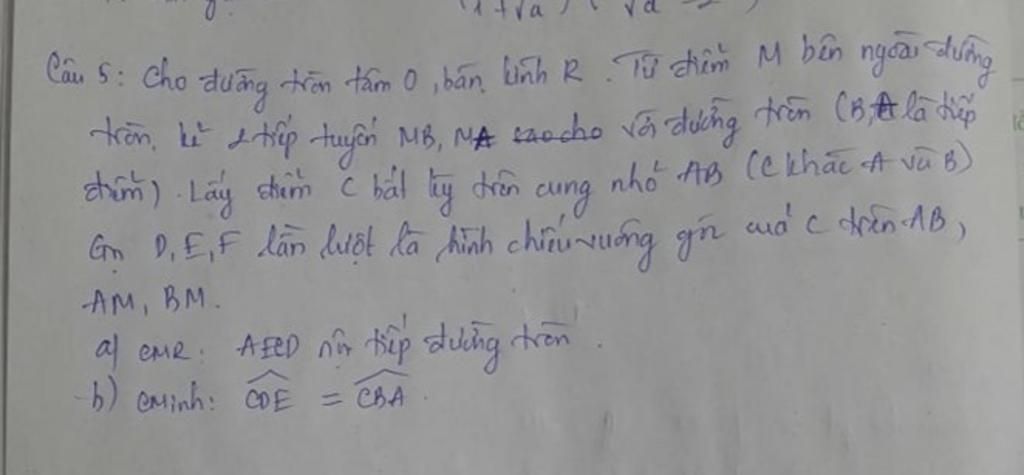 (1+√a) (√a
Câu 5: Cho đường tròn tâm O, bán kính R. Từ điểm M bên ngoài đường
tròn, kẻ 2 tiếp tuyến MB, MA sao cho với đường tròn (B, A là tiếp
điểm). Lấy điểm C bất kỳ trên cung nhỏ AB (C khác A và B)
Gọi D, E, F lần lượt là hình chiếu vuông góc của C trên AB,
AM, BM.
a) CMR: AECD nội tiếp đường tròn.
b) CMinh: CDE = CBA.